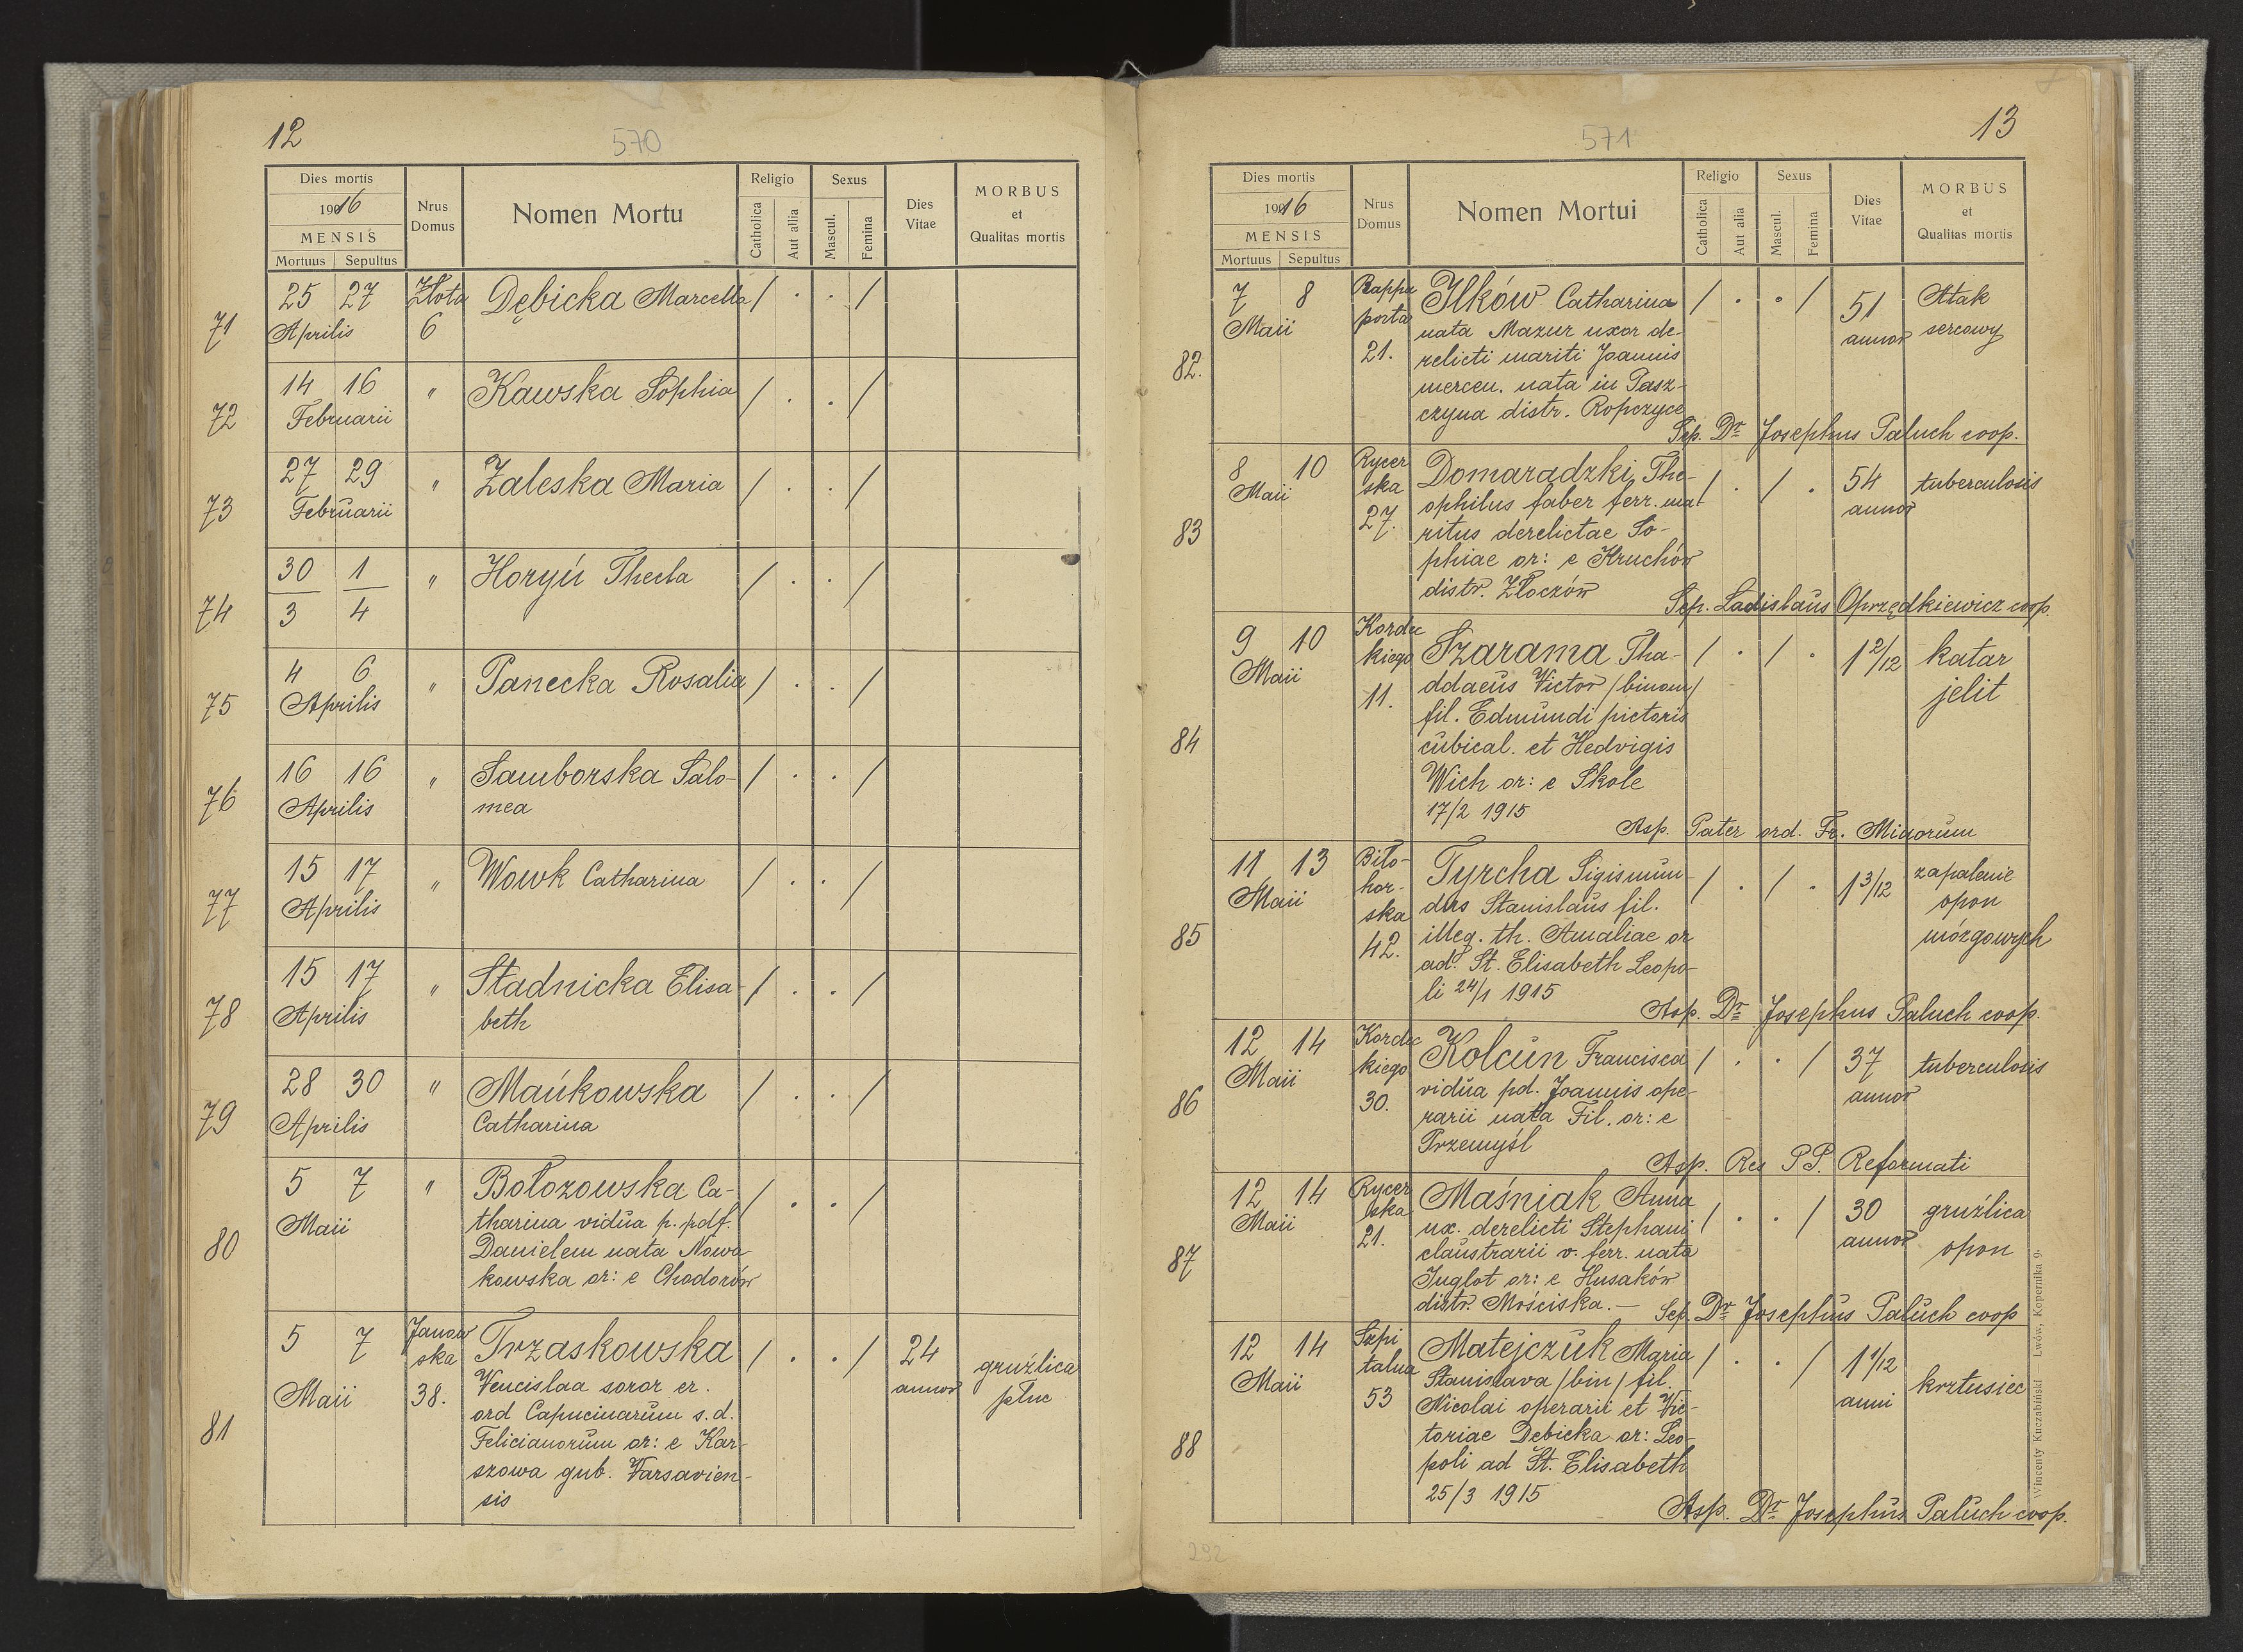 12
570
Dies mortis
1916
MENSIS
Mortuus Sepultus
Nrus
Domus
Nomen Mortu
Religio
Catholica
Aut allia
Sexus
Mascul.
Femina
Dies
Vitae
MORBUS
et
Qualitas mortis
71
25 27
Aprilis
Złota
6
Dębicka Marcella / . . /
72
14 16
Februarii
"
Kawska Sophia / . . /
73
27 29
Februarii
"
Zaleska Maria / . . /
74
30 1
3 4
"
Horyń Thecla / . . /
75
4 6
Aprilis
"
Panecka Rosalia / . . /
76
16 16
Aprilis
"
Samborska Salo- / . . /
mea
77
15 17
Aprilis
"
Wowk Catharina / . . /
78
15 17
Aprilis
"
Stadnicka Elisa- / . . /
beth
79
28 30
Aprilis
"
Mańkowska / . . /
Catharina
80
5 7
Maii
"
Bołozowska Ca- / . . /
tharina vidua p. pdf.
Danielem nata Nowa-
kowska or: e Chodorów
81
5 7
Maii
Janow
ska
38.
Trzaskowska / . . /
Vencislaa soror er.
ord Capucinarum s. d.
Felicianorum or: e Kar-
szowa gub. Varsavien-
sis
24
annor
gruźlica
płuc
13
571
Dies mortis
1916
MENSIS
Mortuus Sepultus
Nrus
Domus
Nomen Mortui
Religio
Catholica
Aut alia
Sexus
Mascul.
Femina
Dies
Vitae
MORBUS
et
Qualitas mortis
82.
7 8
Maii
Rappa
porta
21.
Ilków Catharina / . . /
nata Mazur uxor de-
relicti mariti Joannis
mercen. nata in Pasz-
czyna distr. Ropczyce
51
annor
Atak
sercowy
Sep. Dr Josephus Paluch coop.
83
8 10
Maii
Rycer
ska
27.
Domaradzki The- / . / .
ophilus faber ferr. ma-
ritus derelictae So-
phiae or: e Kruchów
distr. Złoczów
54
annor
tuberculosis
Sep. Ladislaus Oprzędkiewicz coop.
84
9 10
Maii
Kordec
kiego
11.
Szarama Tha- / . / .
ddaeus Victor /binom/
fil. Edmundi pictoris
cubical. et Hedvigis
Wich or: e Skole
17/2 1915
1 2/12
katar
jelit
Asp. Pater ord. Fr. Minorum
85
11 13
Maii
Biło-
hor-
ska
42.
Tyrcha Sigismun- / . / .
dus Stanislaus fil.
illeg. th. Amaliae or
ad. St. Elisabeth Leopo-
li 24/1 1915
1 3/12
zapalenie
opon
mózgowych
Asp. Dr Josephus Paluch coop.
86
12 14
Maii
Kordec
kiego
30.
Kolcun Francisca / . . /
vidua pd. Joannis ope-
rarii nata Fil. or: e
Przemyśl
37
annor
tuberculosis
Asp. Res PP. Reformati
87
12 14
Maii
Rycer
ska
21.
Maśniak Anna / . . /
ux. derelicti Stephani
claustrarii v. ferr. nata
Juglot or: e Husaków
distr. Mościska. —
30
annor
gruźlica
opon
Sep. Dr Josephus Paluch coop
88
12 14
Maii
Szpi
talna
53
Matejczuk Maria / . . /
Stanislava /bin/ fil.
Nicolai operarii et Vic-
toriae Debicka or: Leo-
poli ad St. Elisabeth
25/3 1915
1 1/12
anni
krztusiec
Asp. Dr Josephus Paluch coop.
Wincenty Kuczabiński — Lwów, Kopernika 9.
292